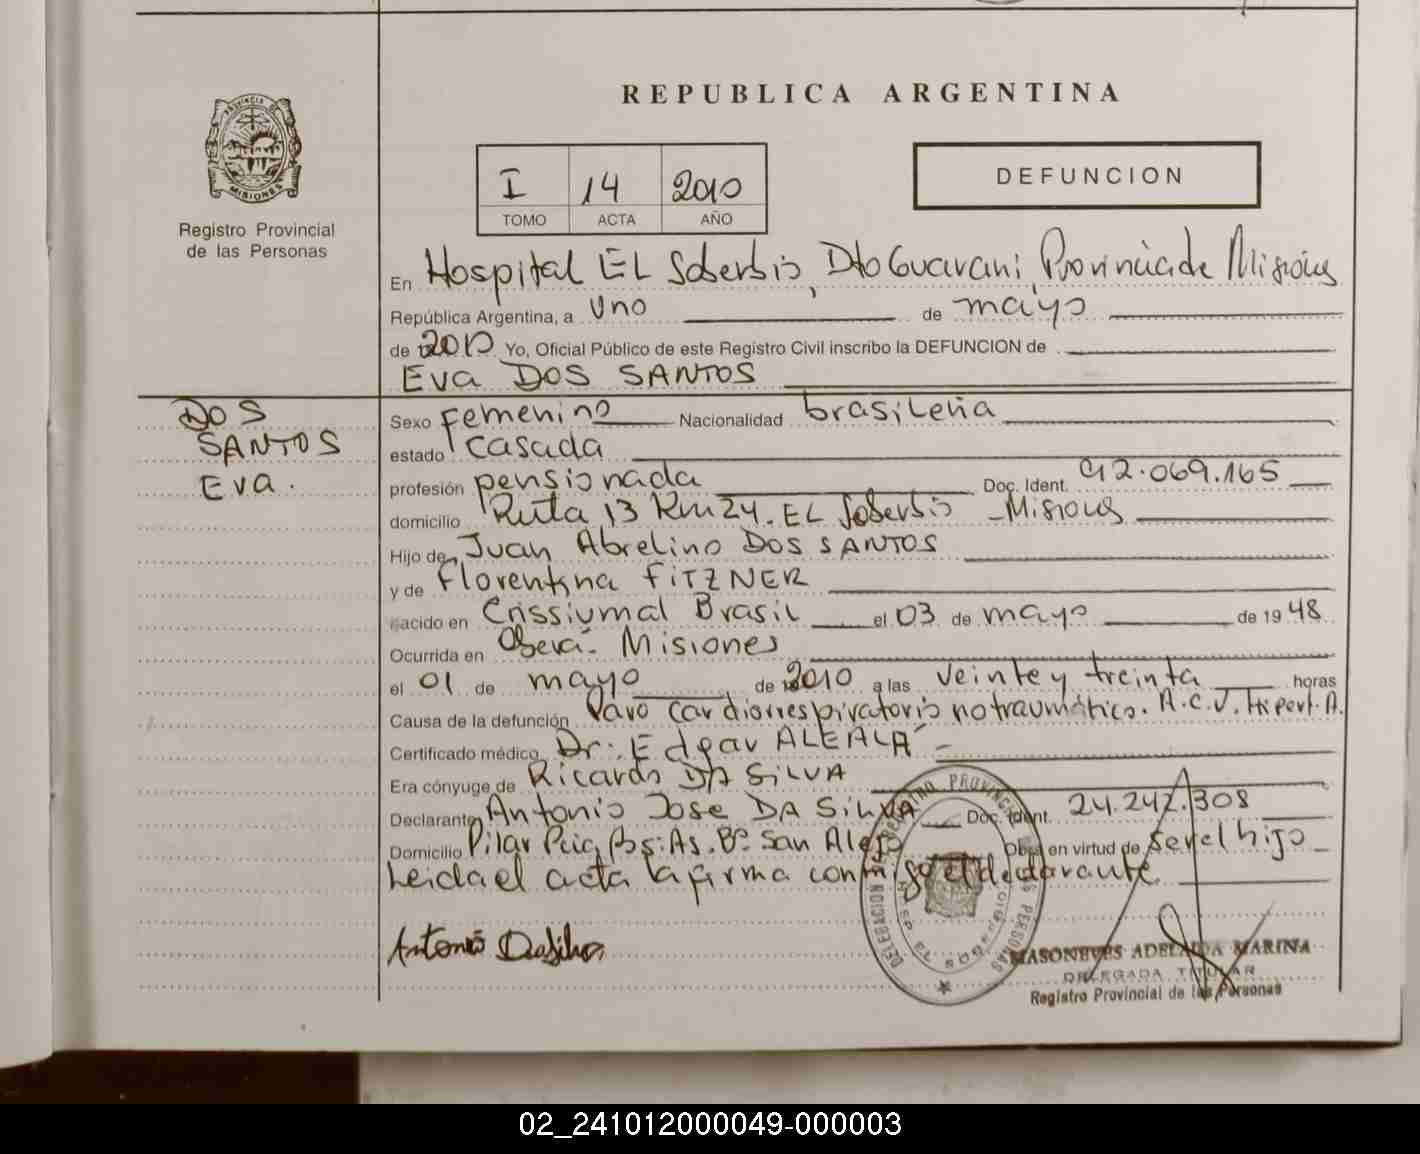 REPUBLICA ARGENTINA
PROVINCIA DE
MISIONES
Registro Provincial
de las Personas
I 14 2010
TOMO ACTA AÑO
DEFUNCION
En Hospital EL Soberbio, Dto Guarani, Provincia de Misiones
República Argentina, a uno de mayo
de 2010 Yo, Oficial Público de este Registro Civil inscribo la DEFUNCION de
Eva DOS SANTOS
DOS
SANTOS
Eva.
Sexo femenino Nacionalidad brasileña
estado casada
profesión pensionada Doc. Ident. 92.069.165
domicilio Ruta 13 Km 24. EL Soberbio - Misiones
Hijo de Juan Abrelino DOS SANTOS
y de Florentina FITZNER
nacido en Crissiumal Brasil el 03 de mayo de 1948
Ocurrida en Oberá - Misiones
el 01 de mayo de 2010 a las veinte y treinta horas
Causa de la defunción Paro cardiorrespiratorio no traumático. A.C.V. Hipert. A.
Certificado médico Dr. Edgar ALEALÁ -
Era cónyuge de Ricardo DA SILVA
Declarante Antonio Jose DA SILVA Doc. Ident. 24.242.308
Domicilio Pilar Bs. As. Bº San Alejo Obra en virtud de ser el hijo
Leida el acta la firma conmigo el declarante
Antonio Dasilva
MASONEVES ADELAIDA MARINA
DELEGADA TITULAR
Registro Provincial de las Personas
02_241012000049-000003